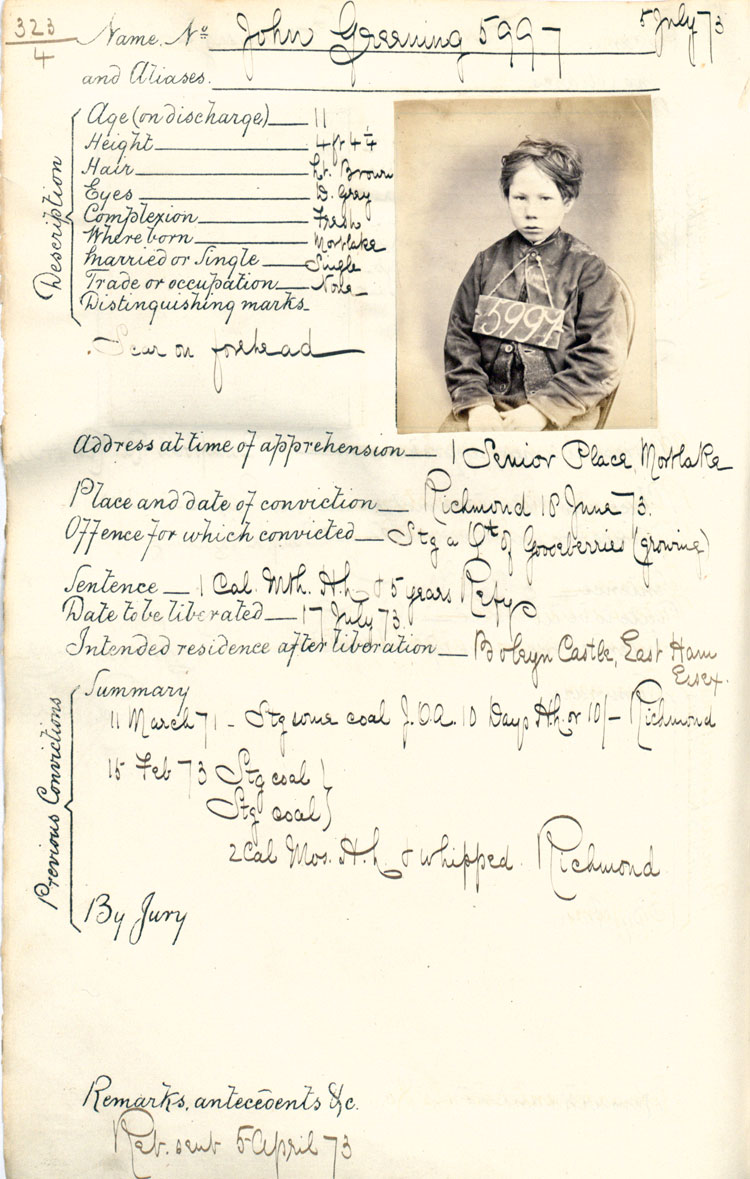 323
4
Name, No John Greening 5997 5 July 73
and Aliases.
Description
Age (on discharge) 11
Height 4 ft 4 1/4
Hair Lt. Brown
Eyes D. Grey
Complexion Fresh
Where born Mortlake
Married or Single Single
Trade or occupation None
Distinguishing marks
Scar on forehead
5997
Address at time of apprehension 1 Senior Place, Mortlake
Place and date of conviction Richmond 18 June 73.
Offence for which convicted Stg a Qt of Gooseberries (growing)
Sentence 1 Cal. Mth. H.h. & 5 years Refy
Date to be liberated 17 July 73.
Intended residence after liberation Boleyn Castle, East Ham
Essex.
Previous Convictions
Summary
11 March 71 - Stg some coal J.O.A. 10 Days H.h. or 10/- Richmond
15 Feb 73 Stg coal }
Stg coal }
2 Cal Mos. H.h. & whipped. Richmond
By Jury
Remarks, antecedents &c.
5 April 73